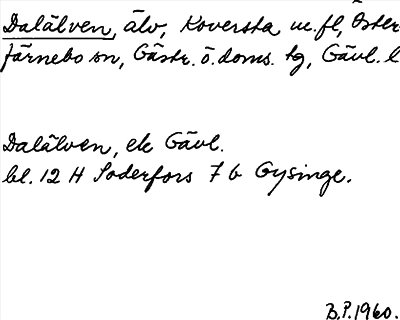 Dalälven, älv, Koversta m.fl, Öster
färnebo sn, Gästr. ö. doms. tg, Gävl. l
Dalälven, ek Gävl.
bl. 12 H Söderfors 7 b Gysinge.
B.P. 1960.